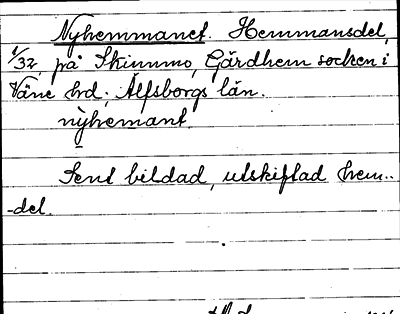 Nyhemmanet. Hemmansdel
1/32 på Skinnmo, Gärdhem socken i
Väne hrd; Älfsborgs län.
nỳhemant.
Sent bildad, utskiftad hem-
-del.